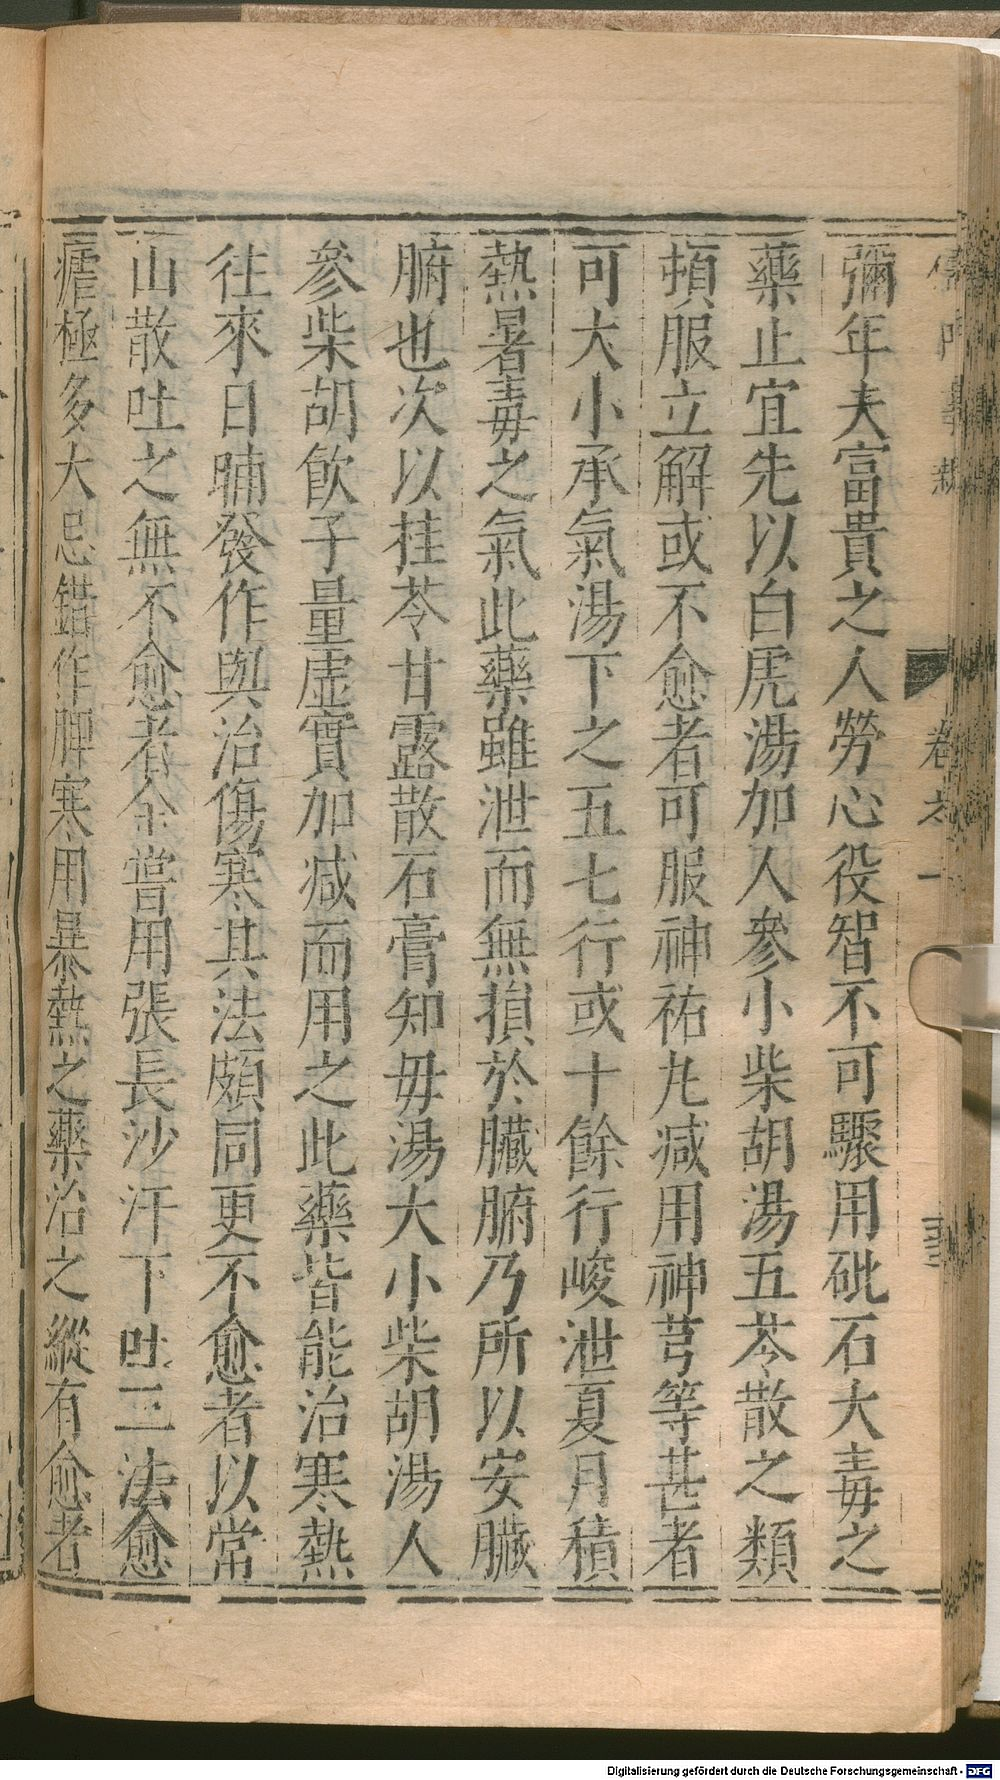 彌年夫富貴之人勞心役智不可驟用砒石大毒之
藥止宜先以白虎湯加人參小柴胡湯五苓散之類
頓服立解或不愈者可服神祐丸减用神芎等甚者
可大小承氣湯下之五七行或十餘行峻泄夏月積
熱暑毒之氣此藥雖泄而無損於臟腑乃所以安臟
腑也次以桂苓甘露散石膏知母湯大小柴胡湯人
參柴胡飲子量虛實加减而用之此藥皆能治寒熱
往來日晡發作與治傷寒其法頗同更不愈者以常
山散吐之無不愈者余嘗用張長沙汗下吐三法愈
瘧極多大忌錯作脾寒用暴熱之藥治之縱有愈者
卷之一
Digitalisierung gefördert durch die Deutsche Forschungsgemeinschaft - DFG